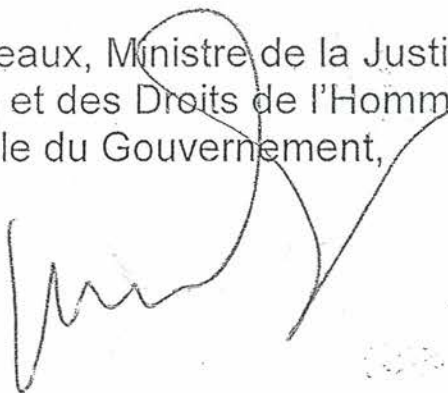 eaux, Ministre de la Justi
et des Droits de l'Homm
le du Gouvernement,